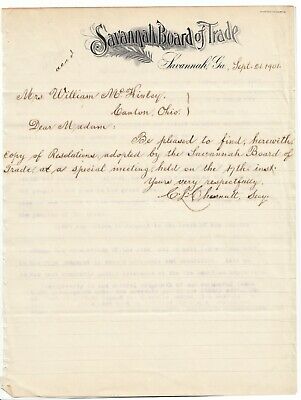 Savannah Board of Trade
Savannah, Ga., Sept. 21 1901.
Mrs. William McKinley,
Canton, Ohio.
Dear Madam:
Be pleased to find, herewith
copy of Resolutions, adopted by the Savannah Board of
Trade, at a special meeting, held on the 17th inst.
Yours very respectfully,
Secy.